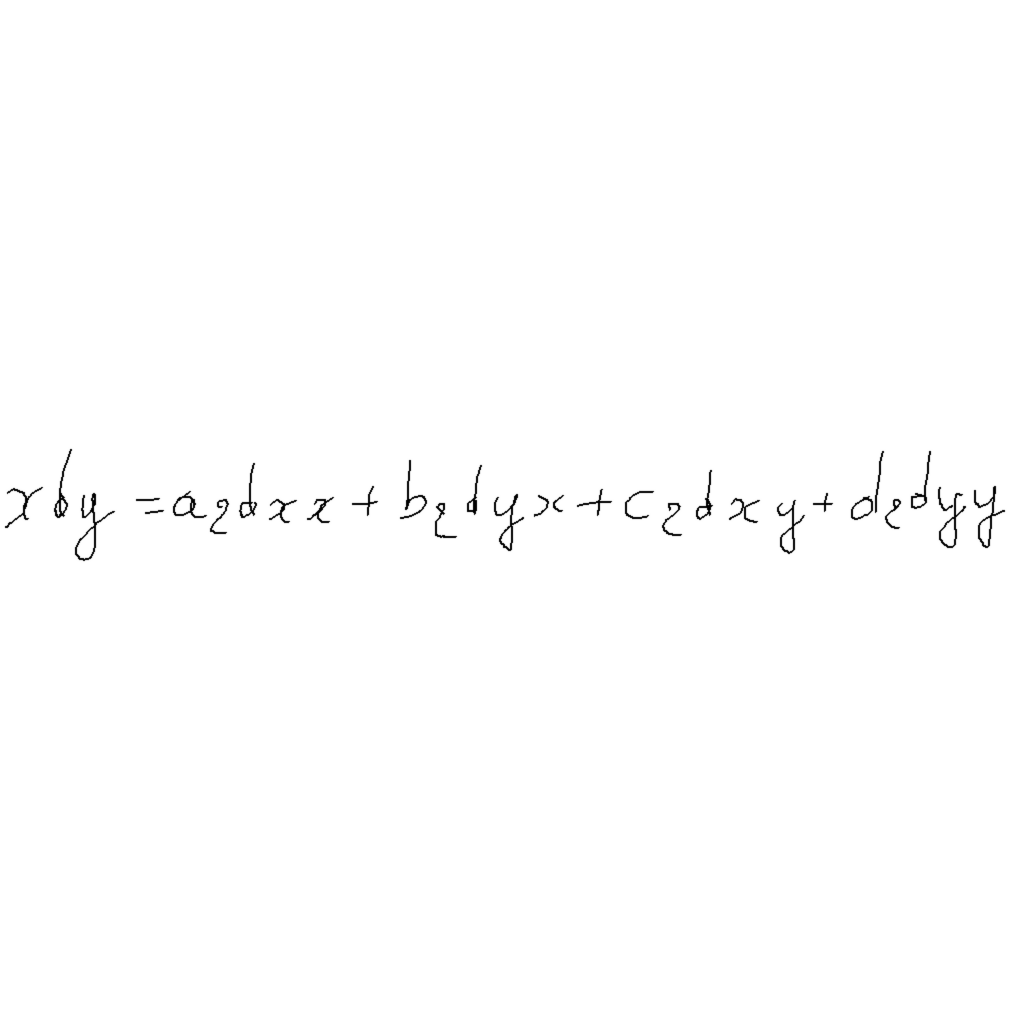 x dy = a₂dx x + b₂dy x + c₂dx y + d₂dy y